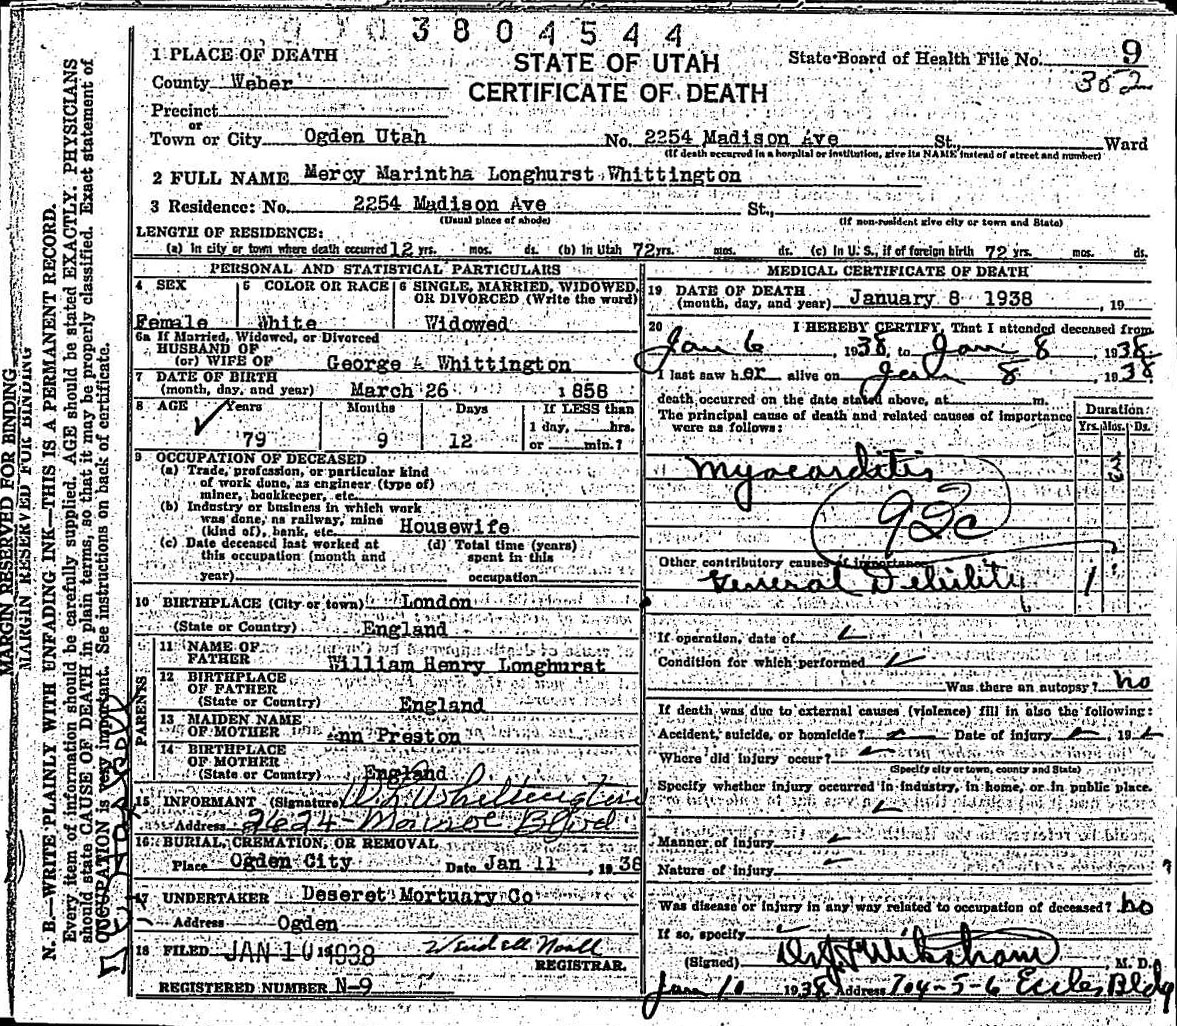 3804544
1 PLACE OF DEATH
STATE OF UTAH
State Board of Health File No. 9
County Weber
CERTIFICATE OF DEATH
352
Precinct
or
Town or City Ogden Utah No. 2254 Madison Ave St., Ward
(If death occurred in a hospital or institution, give its NAME instead of street and number)
2 FULL NAME Mercy Marintha Longhurst Whittington
3 Residence: No. 2254 Madison Ave St.,
(Usual place of abode) (If non-resident give city or town and State)
LENGTH OF RESIDENCE:
(a) In city or town where death occurred 12 yrs. mos. ds. (b) In Utah 72 yrs. mos. ds. (c) In U. S., if of foreign birth 72 yrs. mos. ds.
PERSONAL AND STATISTICAL PARTICULARS
4 SEX
Female
5 COLOR OR RACE
White
6 SINGLE, MARRIED, WIDOWED,
OR DIVORCED (Write the word)
Widowed
6a If Married, Widowed, or Divorced
HUSBAND OF
(or) WIFE OF George A Whittington
7 DATE OF BIRTH
(month, day, and year) March 26 1858
8 AGE Years Months Days If LESS than
1 day, hrs.
79 9 12 or min.?
9 OCCUPATION OF DECEASED
(a) Trade, profession, or particular kind
of work done, as engineer (type of)
miner, bookkeeper, etc.
(b) Industry or business in which work
was done, as railway, mine
(kind of), bank, etc. Housewife
(c) Date deceased last worked at
this occupation (month and
year)
(d) Total time (years)
spent in this
occupation
10 BIRTHPLACE (City or town) London
(State or Country) England
PARENTS
11 NAME OF
FATHER William Henry Longhurst
12 BIRTHPLACE
OF FATHER
(State or Country) England
13 MAIDEN NAME
OF MOTHER Ann Preston
14 BIRTHPLACE
OF MOTHER
(State or Country) England
15 INFORMANT (Signature) W L Whittington
Address 2624 - Monroe Blvd
16 BURIAL, CREMATION, OR REMOVAL
Place Ogden City Date Jan 11, 1938
17 UNDERTAKER Deseret Mortuary Co
Address Ogden
18 FILED JAN 10 1938 Wendell Noall
REGISTRAR.
REGISTERED NUMBER N-9
MEDICAL CERTIFICATE OF DEATH
19 DATE OF DEATH
(month, day, and year) January 8 1938, 19
20 I HEREBY CERTIFY, That I attended deceased from
Jan 6, 1938, to Jan 8, 1938
I last saw her alive on Jan 8, 1938.
death occurred on the date stated above, at m.
The principal cause of death and related causes of importance
were as follows:
Duration
Yrs. Mos. Ds.
Myocarditis 3
93c
Other contributory causes of importance
General Debility 1
If operation, date of
Condition for which performed
Was there an autopsy? no
If death was due to external causes (violence) fill in also the following:
Accident, suicide, or homicide? Date of injury , 19
Where did injury occur?
(Specify city or town, county and State)
Specify whether injury occurred in industry, in home, or in public place.
Manner of injury
Nature of injury
Was disease or injury in any way related to occupation of deceased? no
If so, specify
(Signed) M. D.
Jan 10 1938 Address 704-5-6 Eccles Bldg
MARGIN RESERVED FOR BINDING
MARGIN RESERVED FOR BINDING
N. B.—WRITE PLAINLY WITH UNFADING INK—THIS IS A PERMANENT RECORD.
Every item of information should be carefully supplied. AGE should be stated EXACTLY. PHYSICIANS
should state CAUSE OF DEATH in plain terms, so that it may be properly classified. Exact statement of
OCCUPATION is very important. See instructions on back of certificate.